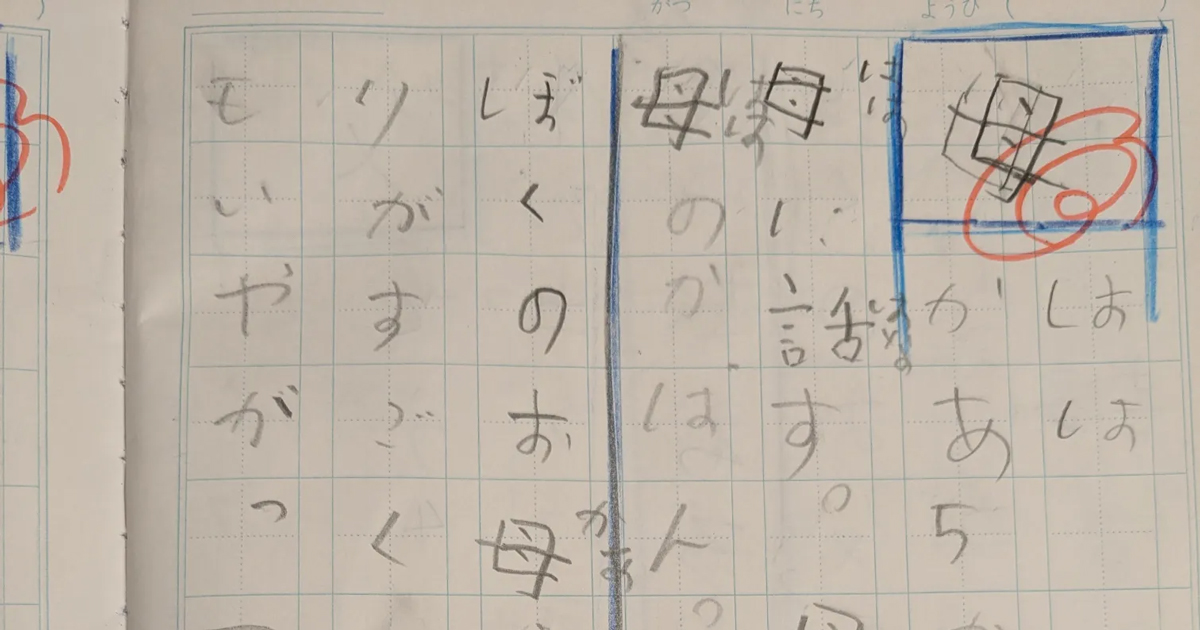 がつ にち ようび (
母
はは
かあ5
母に話す。
はは
はな
母のが
はは
はん
ぼくのお母
かあ
りがすごく
もいやがっ